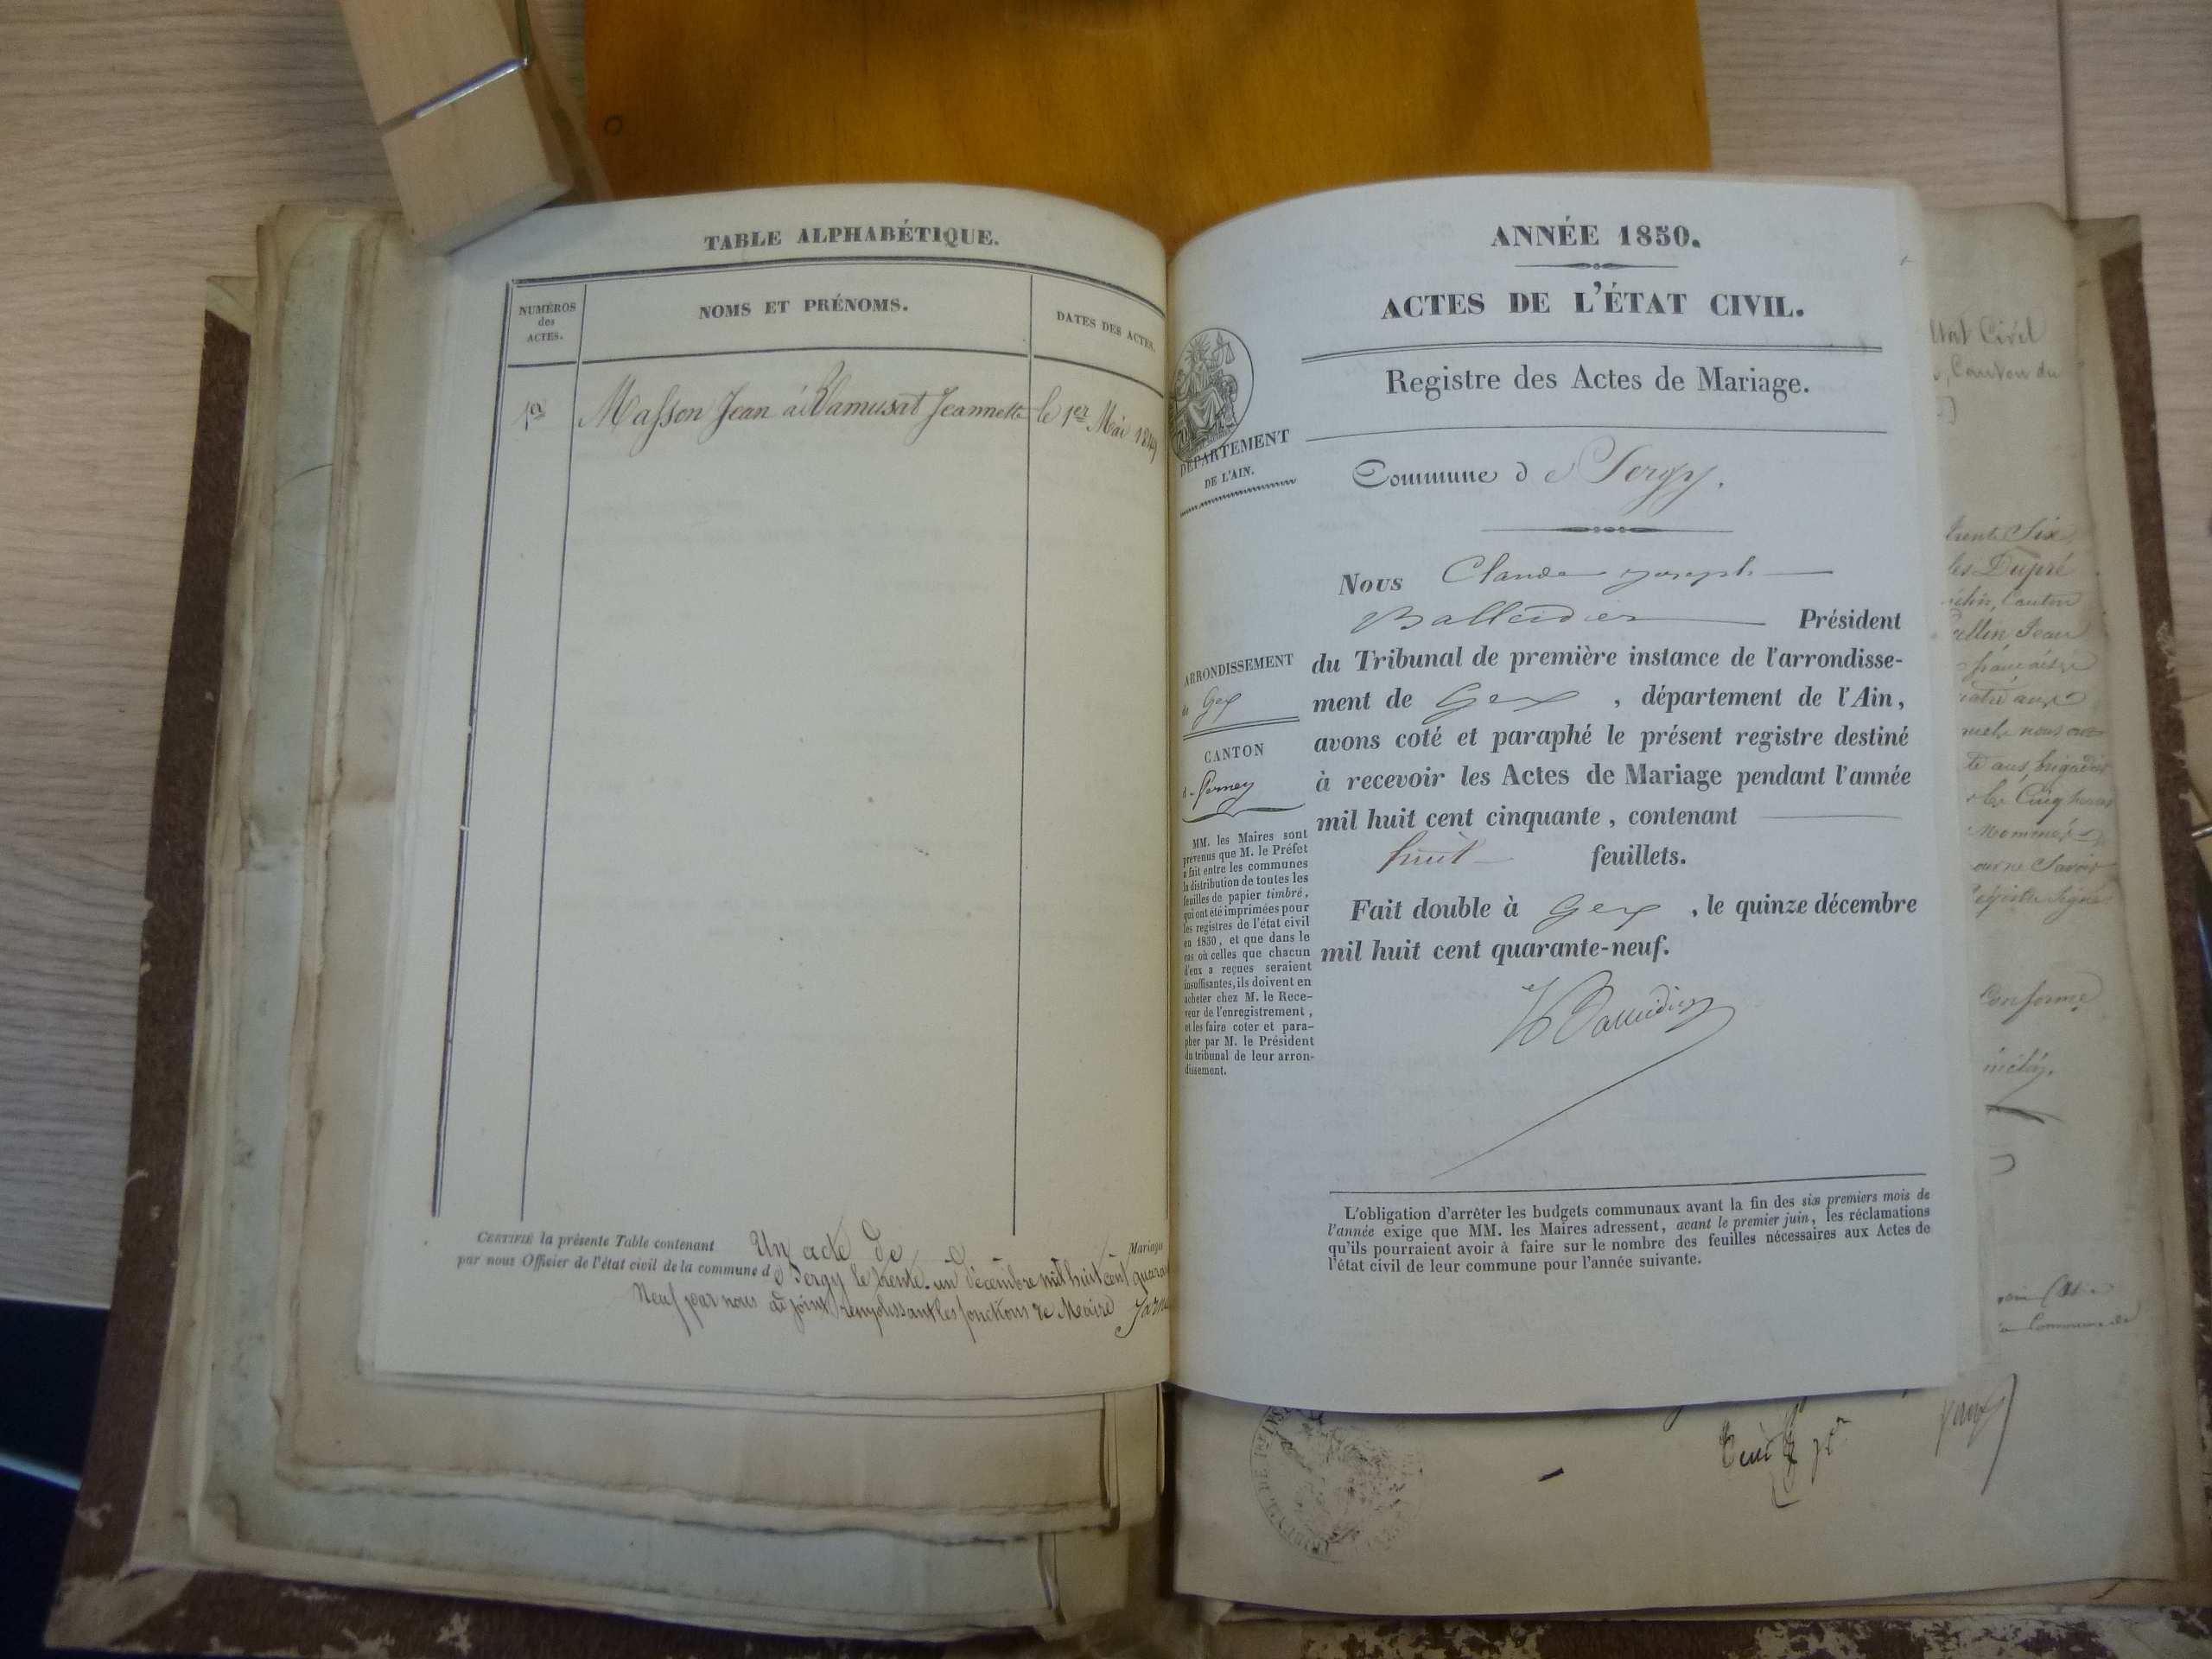 TABLE ALPHABÉTIQUE.
NUMÉROS
des
ACTES.
NOMS ET PRÉNOMS.
DATES DES ACTES.
Masson Jean à Ramusat Jeannette le 1er Mai 1849
CERTIFIÉ la présente Table contenant Un acte de Mariage
par nous Officier de l'état civil de la commune de Sergy le trente-un décembre mil huit cent
Neuf par nous adjoint remplissant les fonctions de Maire
ANNÉE 1850.
ACTES DE L'ÉTAT CIVIL.
Registre des Actes de Mariage.
DÉPARTEMENT
DE L'AIN.
Commune de Sergy.
ARRONDISSEMENT
de Gex
CANTON
de Ferney
MM. les Maires sont
prévenus que M. le Préfet
a fait entre les communes
la distribution de toutes les
feuilles de papier timbré,
qui ont été imprimées pour
les registres de l'état civil
en 1850, et que dans le
cas où celles que chacun
d'eux a reçues seraient
insuffisantes, ils doivent en
acheter chez M. le Rece-
veur de l'enregistrement,
et les faire coter et para-
pher par M. le Président
du tribunal de leur arron-
dissement.
Nous Claude joseph
Balleidier Président
du Tribunal de première instance de l'arrondisse-
ment de Gex, département de l'Ain,
avons coté et paraphé le présent registre destiné
à recevoir les Actes de Mariage pendant l'année
mil huit cent cinquante, contenant
huit feuillets.
Fait double à Gex, le quinze décembre
mil huit cent quarante-neuf.
L'obligation d'arrêter les budgets communaux avant la fin des six premiers mois de
l'année exige que MM. les Maires adressent, avant le premier juin, les réclamations
qu'ils pourraient avoir à faire sur le nombre des feuilles nécessaires aux Actes de
l'état civil de leur commune pour l'année suivante.
Etat Civil
, Canton du
trente Six
les Dupré
Canton
Jean
française
nous
Cinq
Nommés
Savoir
Signé
Conforme
Commune de